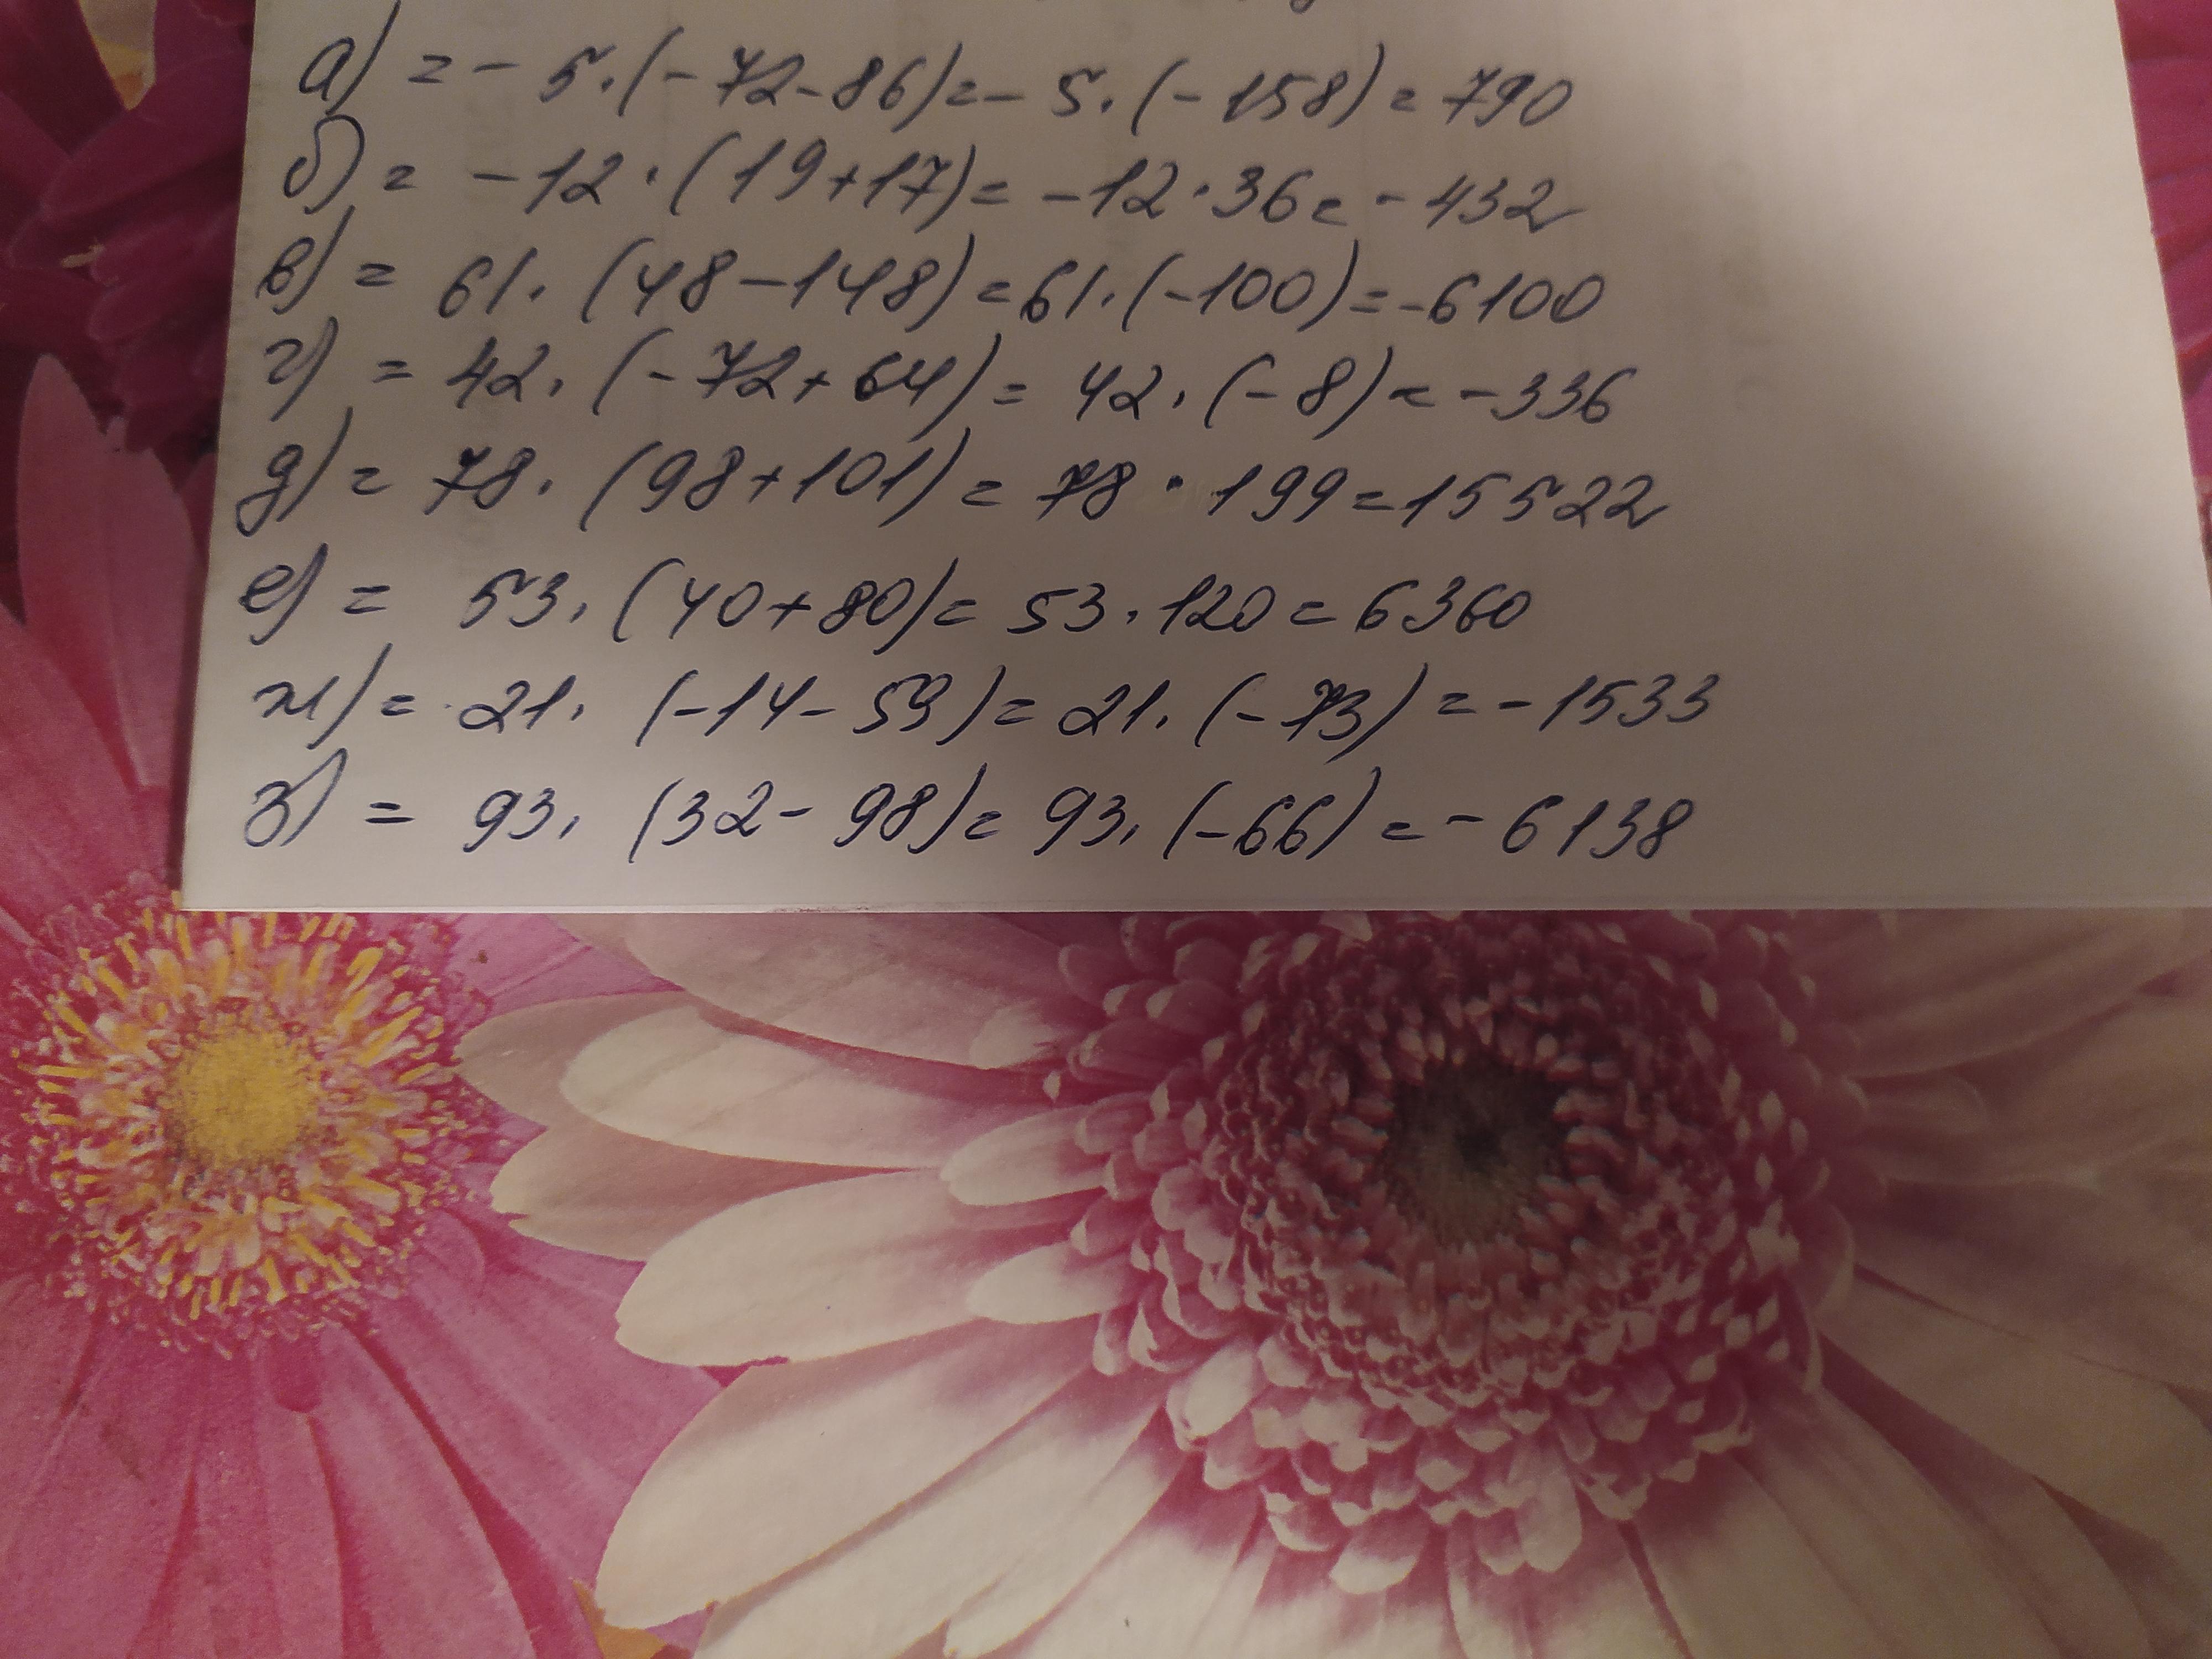 а) = - 5 · (- 72 - 86) = - 5 · (- 158) = 790
б) = - 12 · (19 + 17) = - 12 · 36 = - 432
в) = 61 · (48 - 148) = 61 · (- 100) = - 6100
г) = 42 · (- 72 + 64) = 42 · (- 8) = - 336
д) = 78 · (98 + 101) = 78 · 199 = 15522
е) = 53 · (40 + 80) = 53 · 120 = 6360
ж) = 21 · (- 14 - 59) = 21 · (- 73) = - 1533
з) = 93 · (32 - 98) = 93 · (- 66) = - 6138